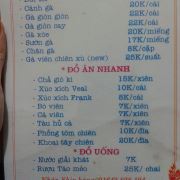 Cánh gà 20K/cái
Gà giòn giòn 22K/cái
Gà giòn cay 22K/cái
Gà xóc 20K/miếng
Sườn gà 17K/miếng
Chân gà 8K/cặp
Gà viên chiên xù (new) 25K/suất
* ĐỒ ĂN NHANH
Chả giò ki 15K/xiên
Xúc xích Veal 10K/cái
Xúc xích Frank 8K/cái
Bò viên 7K/xiên
Cá viên 7K/xiên
Tàu hũ cá 7K/xiên
Phồng tôm chiên 10K/dĩa
Khoai tây chiên 20K/dĩa
* ĐỒ UỐNG
Nước giải khát 7K
Rượu Táo mèo 25K/ chai